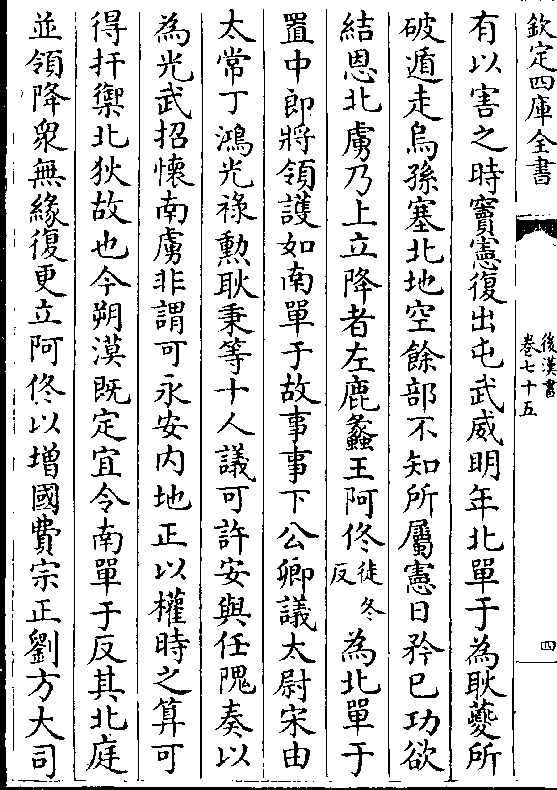 欽定四庫全書
後漢書
卷七十五
四
有以害之時竇憲復出屯武威明年北單于為耿夔所
破遁走烏孫塞北地空餘部不知所屬憲日矜已功欲
結恩北虜乃上立降者左鹿蠡王阿佟徒冬反為北單于
置中郎將領護如南單于故事事下公卿議太尉宋由
太常丁鴻光祿勲耿秉等十人議可許安與任隗奏以
為光武招懷南虜非謂可永安内地正以權時之算可
得扞禦北狄故也今朔漠既定宜令南單于反其北庭
並領降衆無緣復更立阿佟以增國費宗正劉方大司